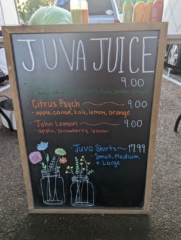 JUVA JUICE
9.00
Citrus Psych 9.00
- apple, carrot, kale, lemon, orange
John Lemon 9.00
- apple, strawberry, lemon
Juva Shirts 17.99
Small, Medium
+ Large